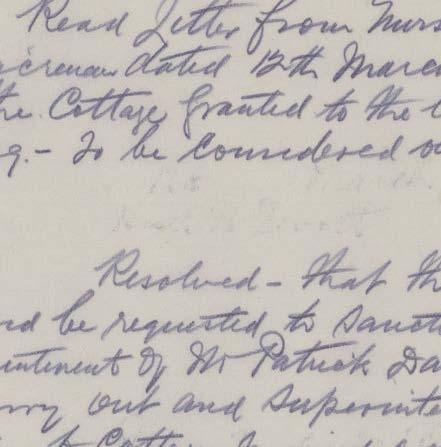 Read Letter from Nurs
dated 12th March
the Cottage Granted to the
g. - To be Considered o
Resolved - that th
rd be requested to Sanct
intment of Mr Patrick Da
rry out and Superinte